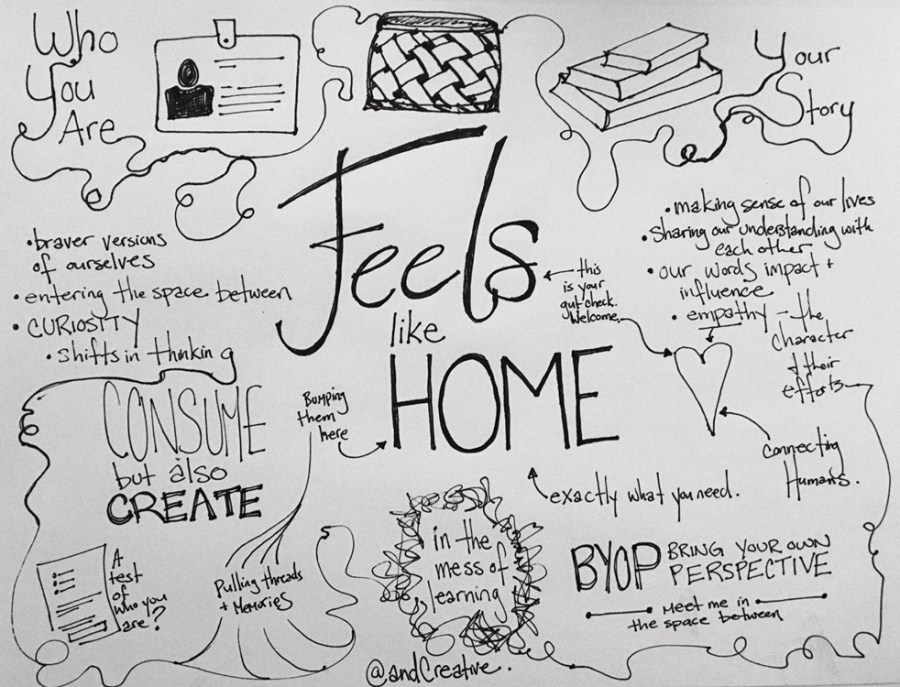 Who
You
Are
Your
Story
Feels
like
HOME
• braver versions
of ourselves
• entering the space between
• CURIOSITY
• shifts in thinking
• making sense of our lives
• Sharing our understanding with
each other
• our words impact +
influence
• empathy – the
character
of their
efforts
this
is your
gut check.
Welcome.
CONSUME
but also
CREATE
Bumping
them
here
connecting
Humans.
exactly what you need.
A
test
of
who you
are?
Pulling threads
+ Memories
in the
mess of
learning
BYOP BRING YOUR OWN
PERSPECTIVE
Meet me in
the space between
@andCreative.